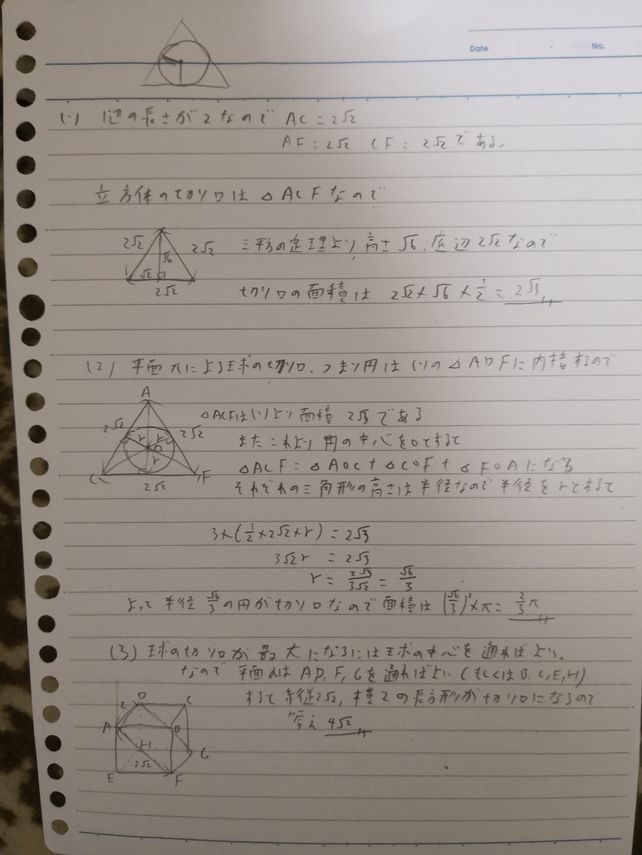 Date ・ ・ No.
(1) 1辺の長さが2なので AC=2√2
AF=2√2 CF=2√2である。
立方体の切り口は△ACFなので
2√2 2√2 √6 √2 2√2
三平方の定理より高さ√6,底辺2√2なので
切り口の面積は 2√2×√6×1/2=2√3
(2) 平面πによる球の切り口、つまり円は(1)の△ADFに内接するので
A 2√2 2√2 r r r O C F 2√2
△ACFは(1)より面積2√3である
またこれより円の中心をOとすると
△ACF=△AOC+△COF+△FOAになる
それぞれの三角形の高さは半径なので半径をrとすると
3×(1/2×2√2×r)=2√3
3√2r=2√3
r=2√3/3√2=√6/3
よって半径√6/3の円が切り口なので面積は(√6/3)²×π=2/3π
(3) 球の切り口が最大になるには球の中心を通ればよい。
なので平面αはA,D,F,Gを通ればよい(もしくはB,C,E,H)
すると縦2√2,横2の長方形が切り口になるので
答え 4√2
D C 2 A B H G 2√2 E F